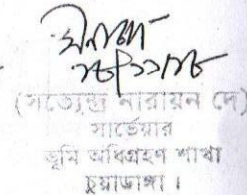 (সত্যেন্দ্র নারায়ন দে)
সার্ভেয়ার
ভূমি অধিগ্রহণ শাখা
চুয়াডাঙ্গা।